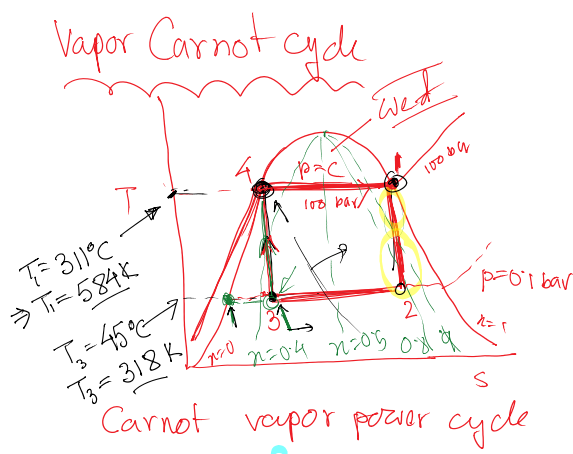 Vapor Carnot cycle
wed
4
p=c
1
100 bar
100 bar
T
T₁=311°C
⇒ T₁=584K
p=0.1 bar
T₃=45°C
T₃=318K
3
2
x=0
x=0.4
x=0.5
0.8
x=1
S
Carnot vapor power cycle